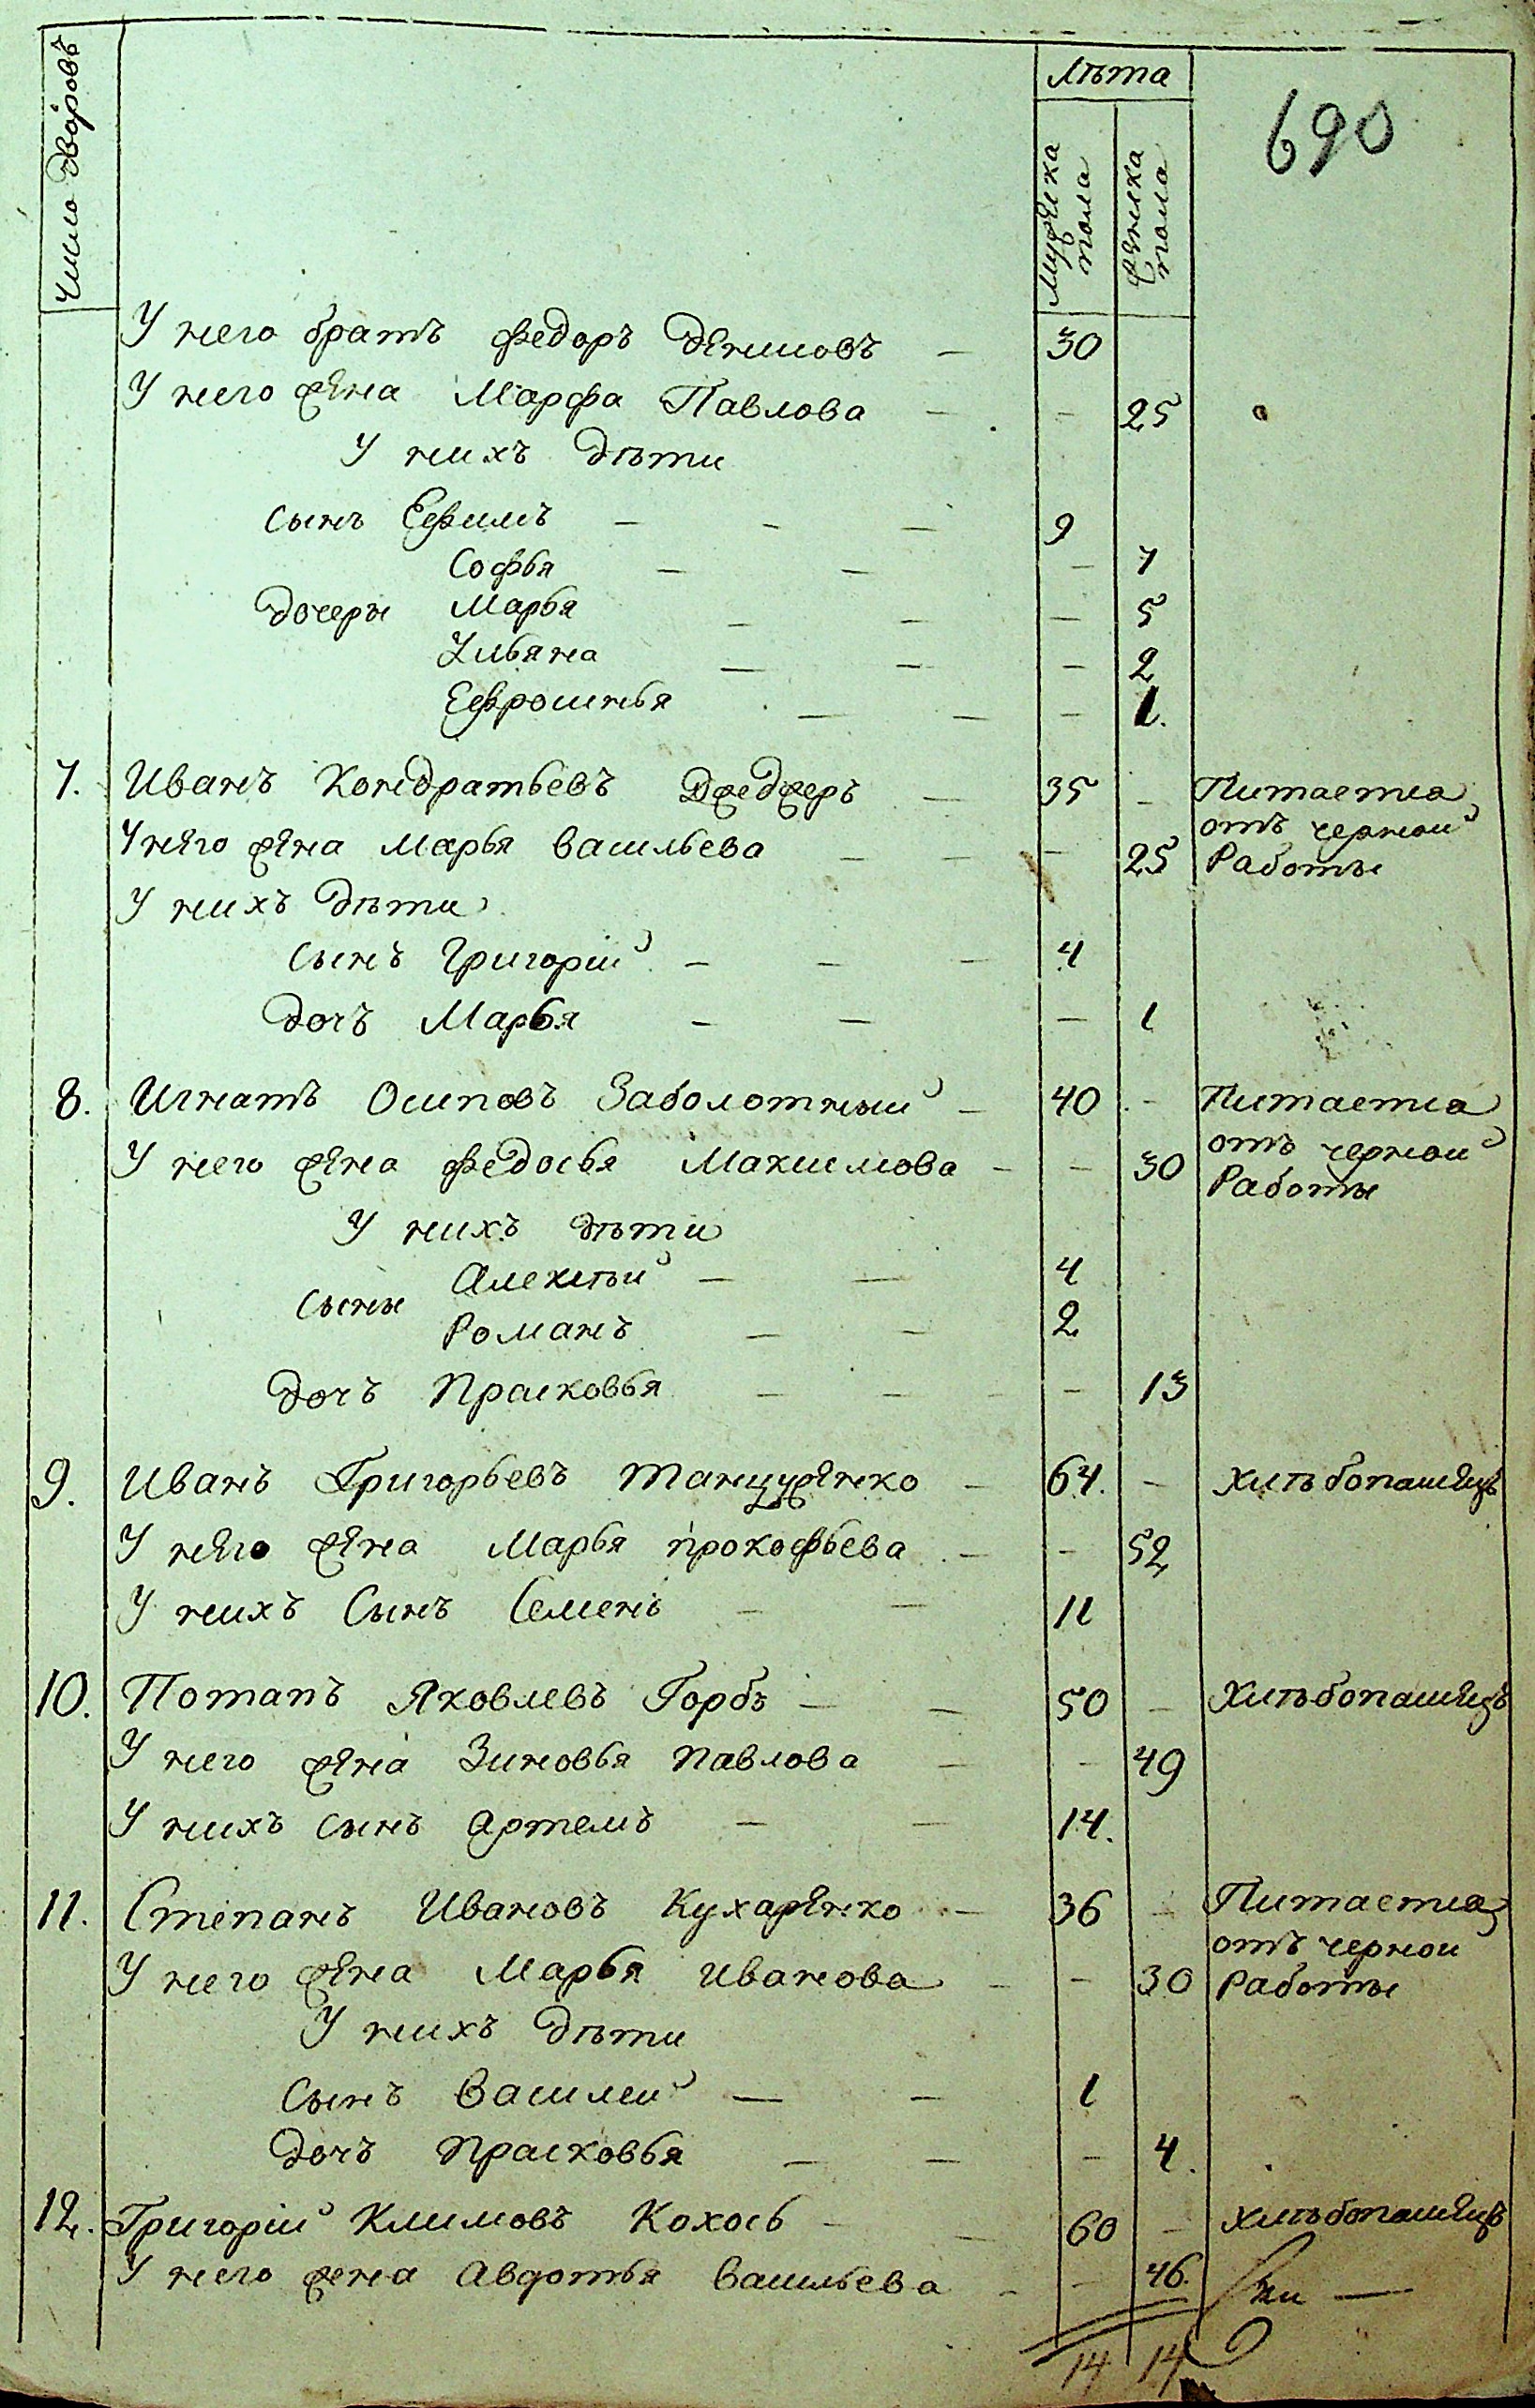 Число дворовъ
Лѣта
Мужеска пола
Женска пола
690
У него братъ Федоръ Денисовъ — 30
У него жена Марфа Павлова — — 25
У нихъ дѣти
сынъ Ефимъ — — — 9
Софья — — — 7
дочеры Марья — — — 5
Ульяна — — — 2
Ефросинья — — — 1.
7. Иванъ Кондратьевъ Джеджеръ — 35 — Питается
отъ черной
У него жена Марья Васильева — — — 25 Работы
У нихъ дѣти
сынъ Григорій — — — 4
дочъ Марья — — — 1
8. Игнатъ Осиповъ Заболотный — 40 — Питается
отъ черной
У него жена Федосья Максимова — — 30 Работы
У нихъ дѣти
Алексѣй — — 4
сыны
Романъ — — 2
дочъ Прасковья — — — 13
9. Иванъ Григорьевъ Танцуженко — 64. — Хлѣбопашецъ
У него жена Марья Прокофьева — — 52
У нихъ Сынъ Семенъ — — 11
10. Потапъ Яковлевъ Горбъ — — 50 — Хлѣбопашецъ
У него жена Зиновья Павлова — — 49
У нихъ сынъ Артемъ — — 14.
11. Степанъ Ивановъ Кухаренко — 36 — Питается
отъ черной
У него жена Марья Иванова — — 30 Работы
У нихъ дѣти
Сынъ Василей — — 1
дочъ Прасковья — — — 4.
12. Григорій Климовъ Кохось — — 60 — Хлѣбопашецъ
У него жена Авдотья Васильева — — 46.
14 14